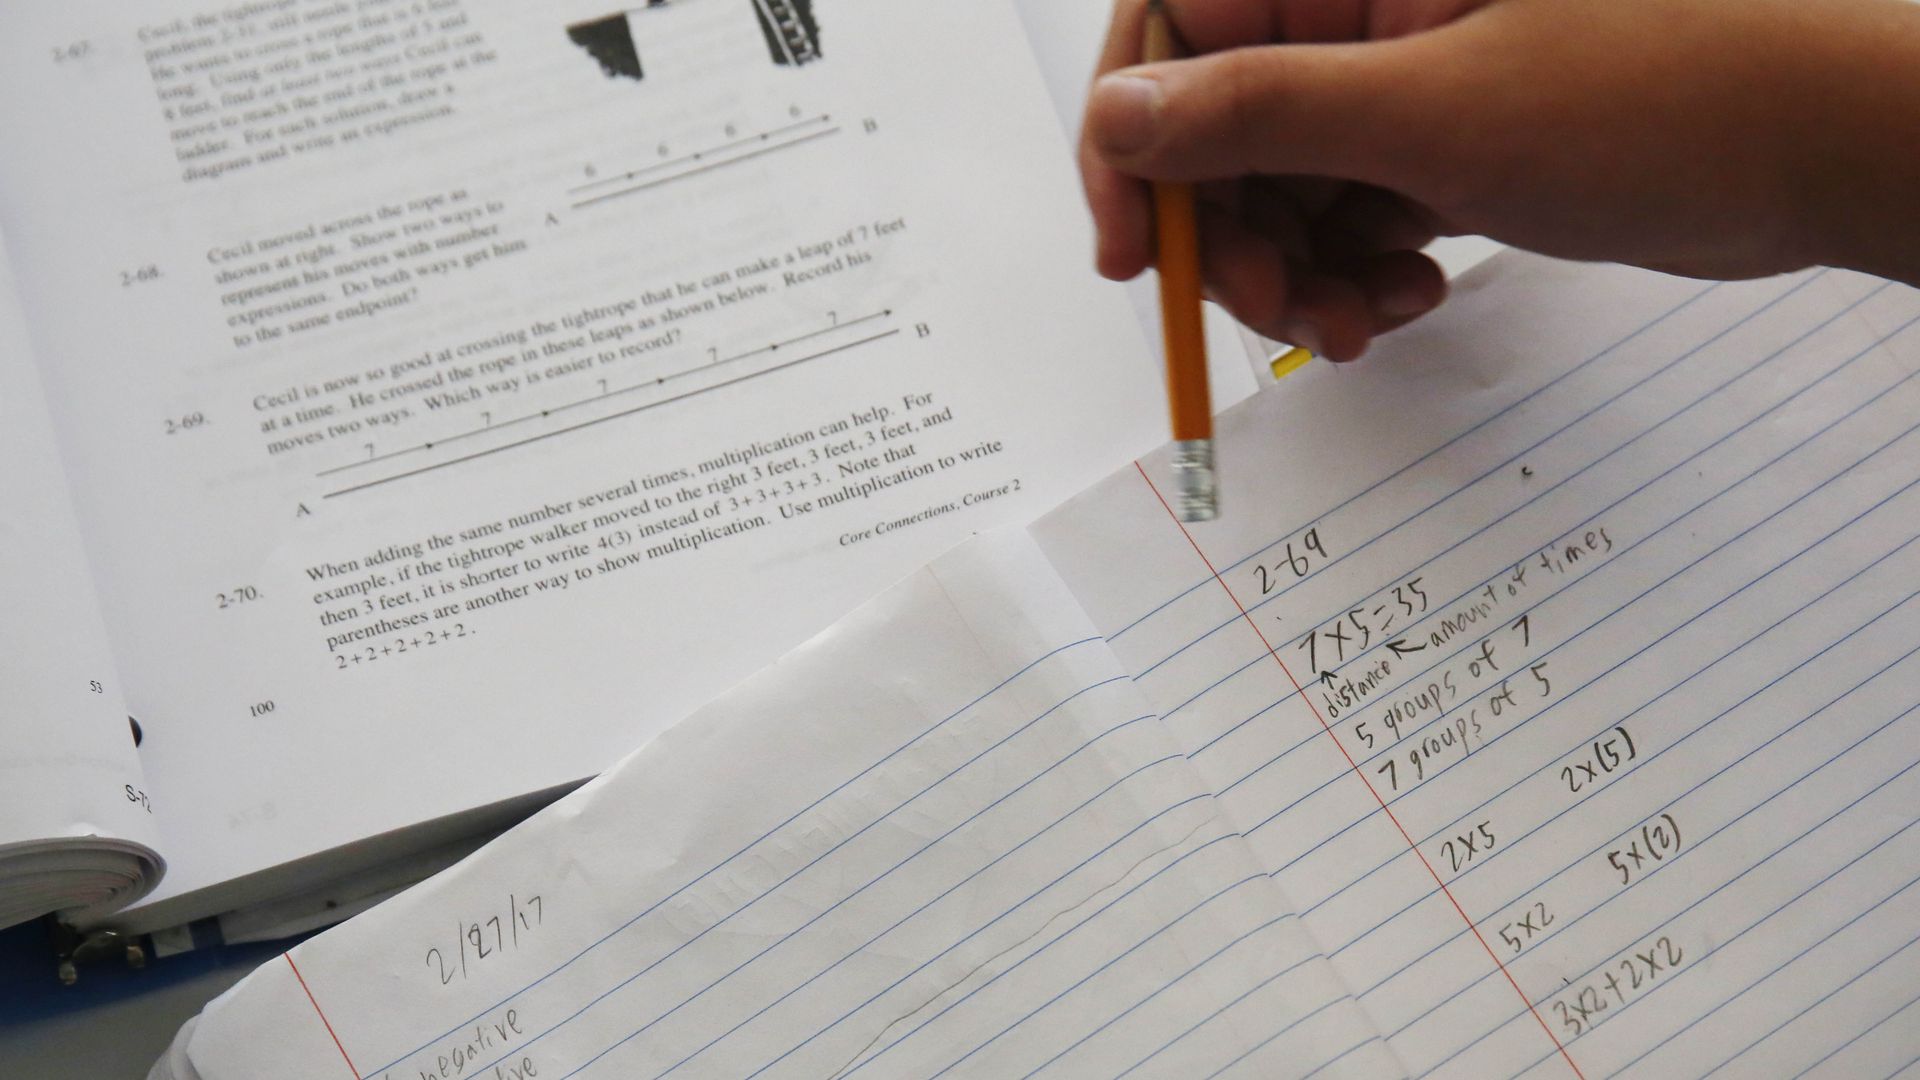 2-67.
Cecil, the tightrope
problem 2-11, still needs
He wants to cross a rope that is 8 feet
long. Using only the lengths of 5 and
8 feet, find at least two ways Cecil can
move to reach the end of the rope at the
ladder. For each solution, draw a
diagram and write an expression.
2-68.
Cecil moved across the rope as
shown at right. Show two ways to
represent his moves with number
expressions. Do both ways get him
to the same endpoint?
6 6 6 6
A B
2-69.
Cecil is now so good at crossing the tightrope that he can make a leap of 7 feet
at a time. He crossed the rope in these leaps as shown below. Record his
moves two ways. Which way is easier to record?
7 7 7 7 7
A B
2-70.
When adding the same number several times, multiplication can help. For
example, if the tightrope walker moved to the right 3 feet, 3 feet, 3 feet, and
then 3 feet, it is shorter to write 4(3) instead of 3+3+3+3. Note that
parentheses are another way to show multiplication. Use multiplication to write
2+2+2+2+2.
100
Core Connections, Course 2
53
S-72
2-69
7×5=35
distance amount of times
5 groups of 7
7 groups of 5
2×5 2×(5)
5×2 5×(2)
3×2+2×2
2/27/17
negative